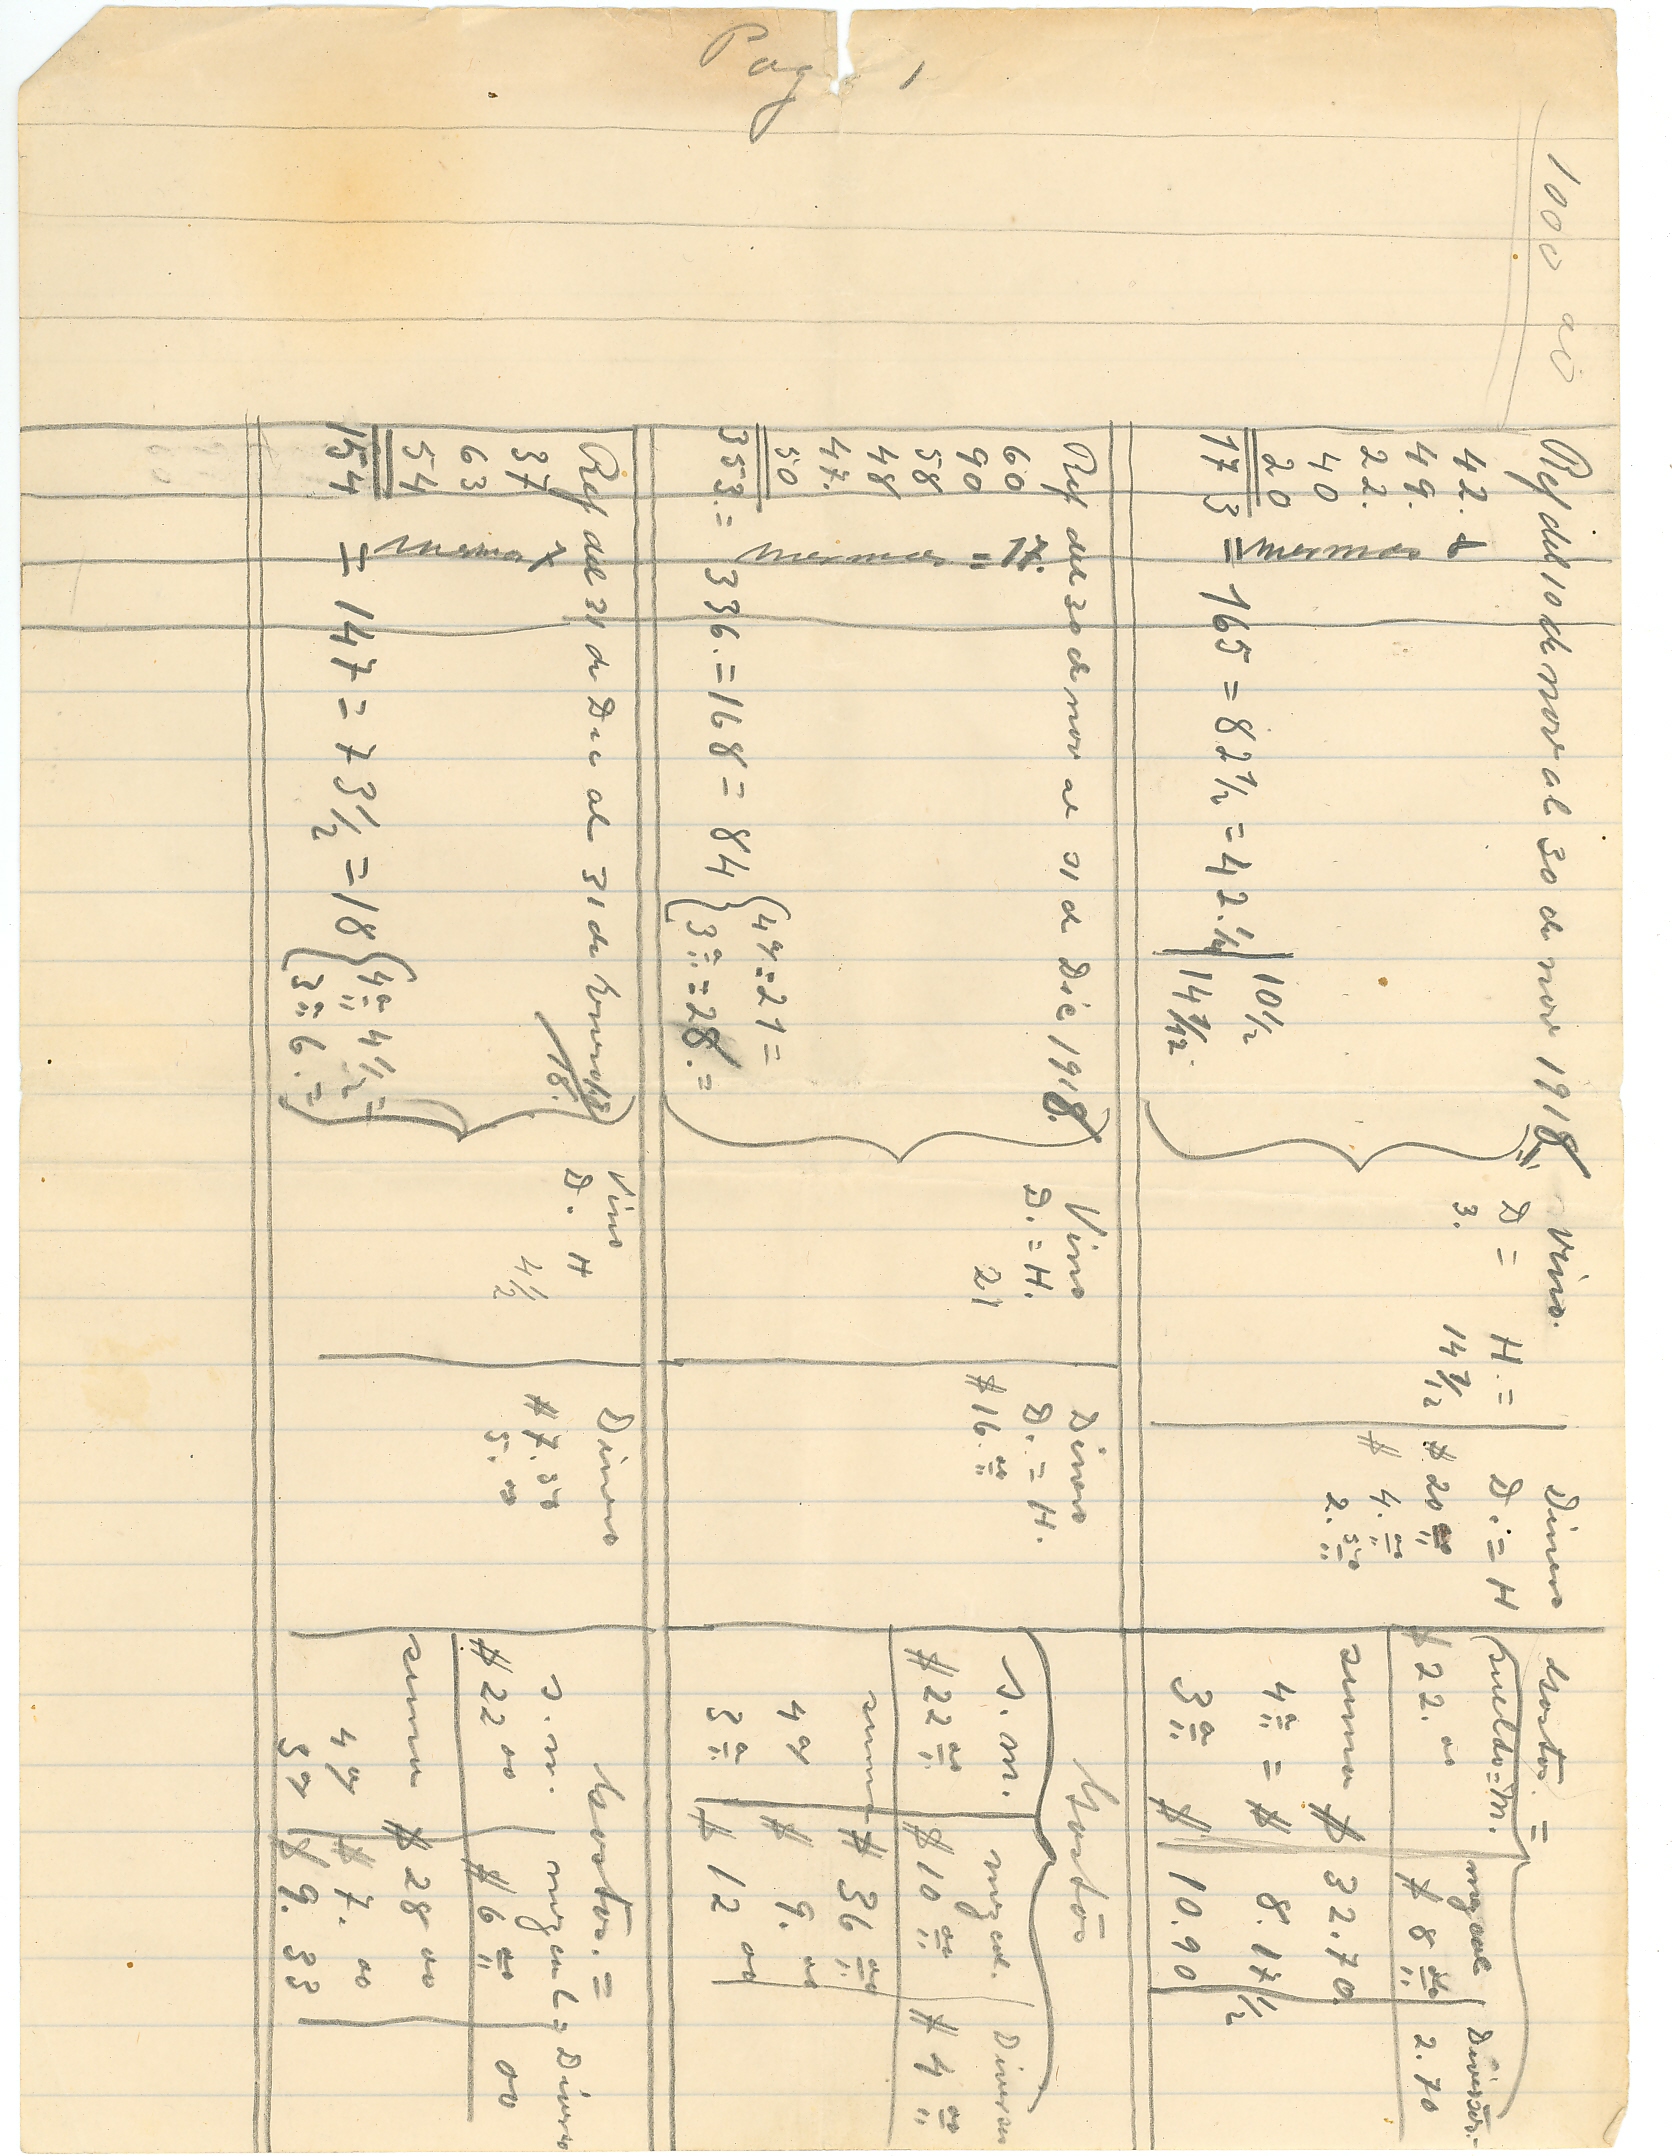 Pag 1
1000 00
Ref del 10 de nov al 30 de nov 1918 Vino. Dinero Gastos. =
42. 8 D = H. = D. = H sueldo = m. mezcal Diversos. -
49. 3. 14 7/12 $ 20 00 $ 22. 00 $ 8 00 2.70
22. $ 4. 00
40 2. 50 suma $ 32.70
20 mermas 10 1/2 4a = $ 8.17 1/2
173 = 165 = 82 1/2 = 42. 1/4 14 7/12. 3a $ 10.90
Ref del 30 de nov al 31 de Dic 1918. Vino Dinero Gastos
60 = 17. D. = H. D. = H. s. m. mezcal. Diversos
90 21 $16. 00 $22 00 $10 00 $ 4 00
58
48 suma $ 36 00
47. 4a $ 9. 00
50 mermas 4a = 21 = 3a $ 12 00
353. = 336. = 168 = 84 3a = 28. =
Ref del 31 de Dic al 31 de Enero Vino Dinero Gastos. =
18. D. H $ 7. 50 s. m. mezcal = Diversos
37 7 4 1/2 5. 00 $ 22 00 $ 6 00 00
63
54 mermas 4a = 4 1/2 = suma $ 28 00
154 = 147 = 73 1/2 = 18 3a 6. = 4a $ 7. 00
3a $ 9. 33